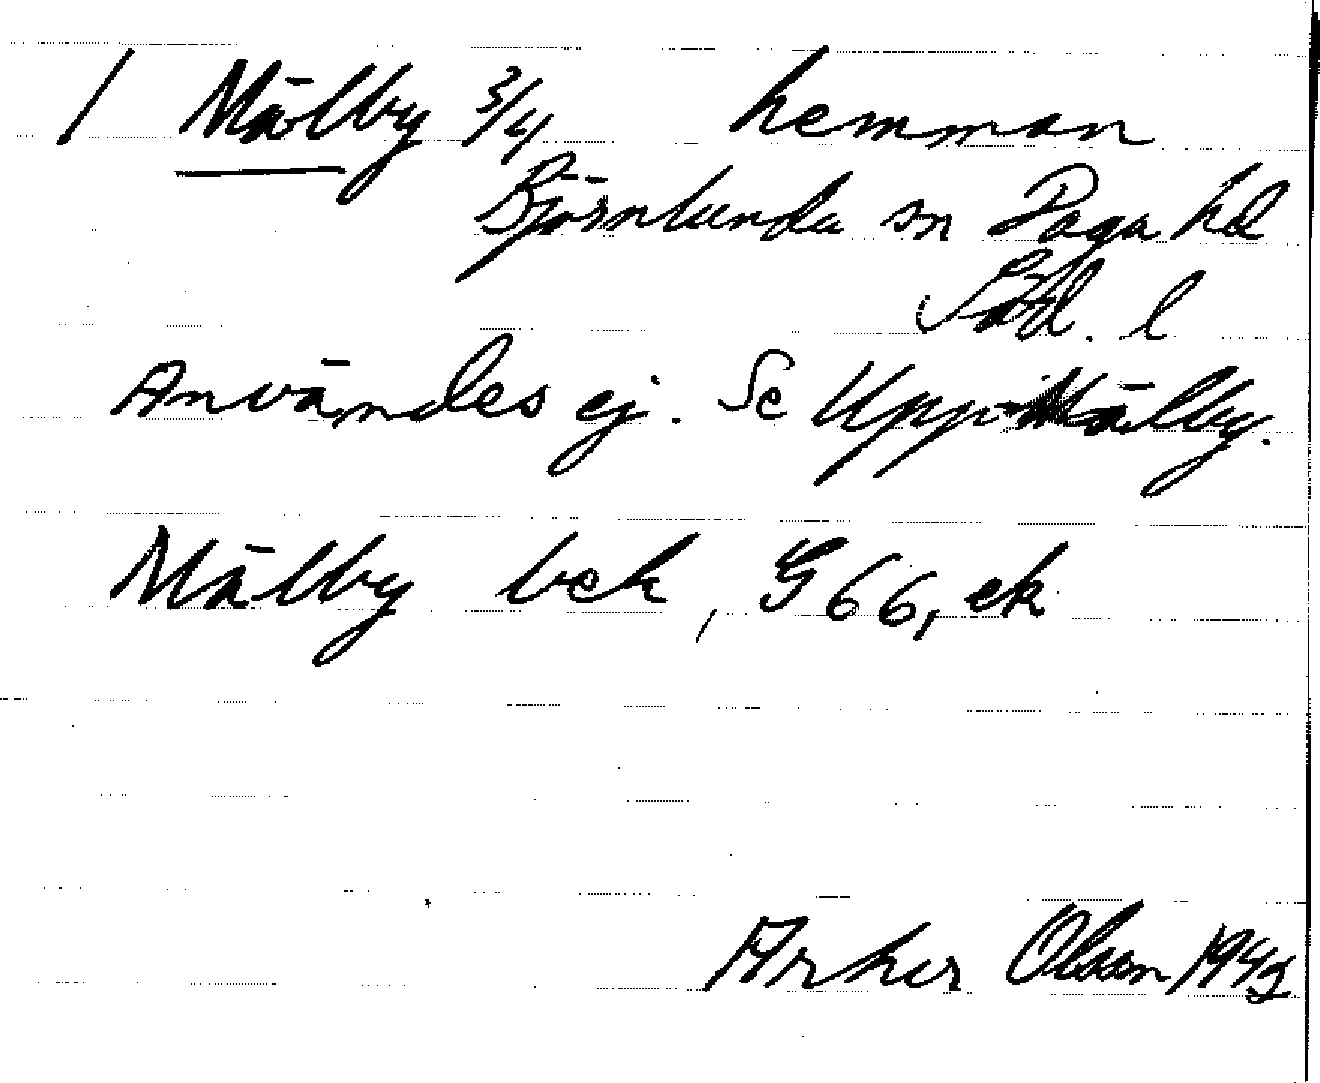 / Mälby 3/4 hemman
Björnlunda sn Daga hd
Södl. l
Användes ej. Se Upp-Mälby.
Mälby bek, G 66, ek
Olsson 1942